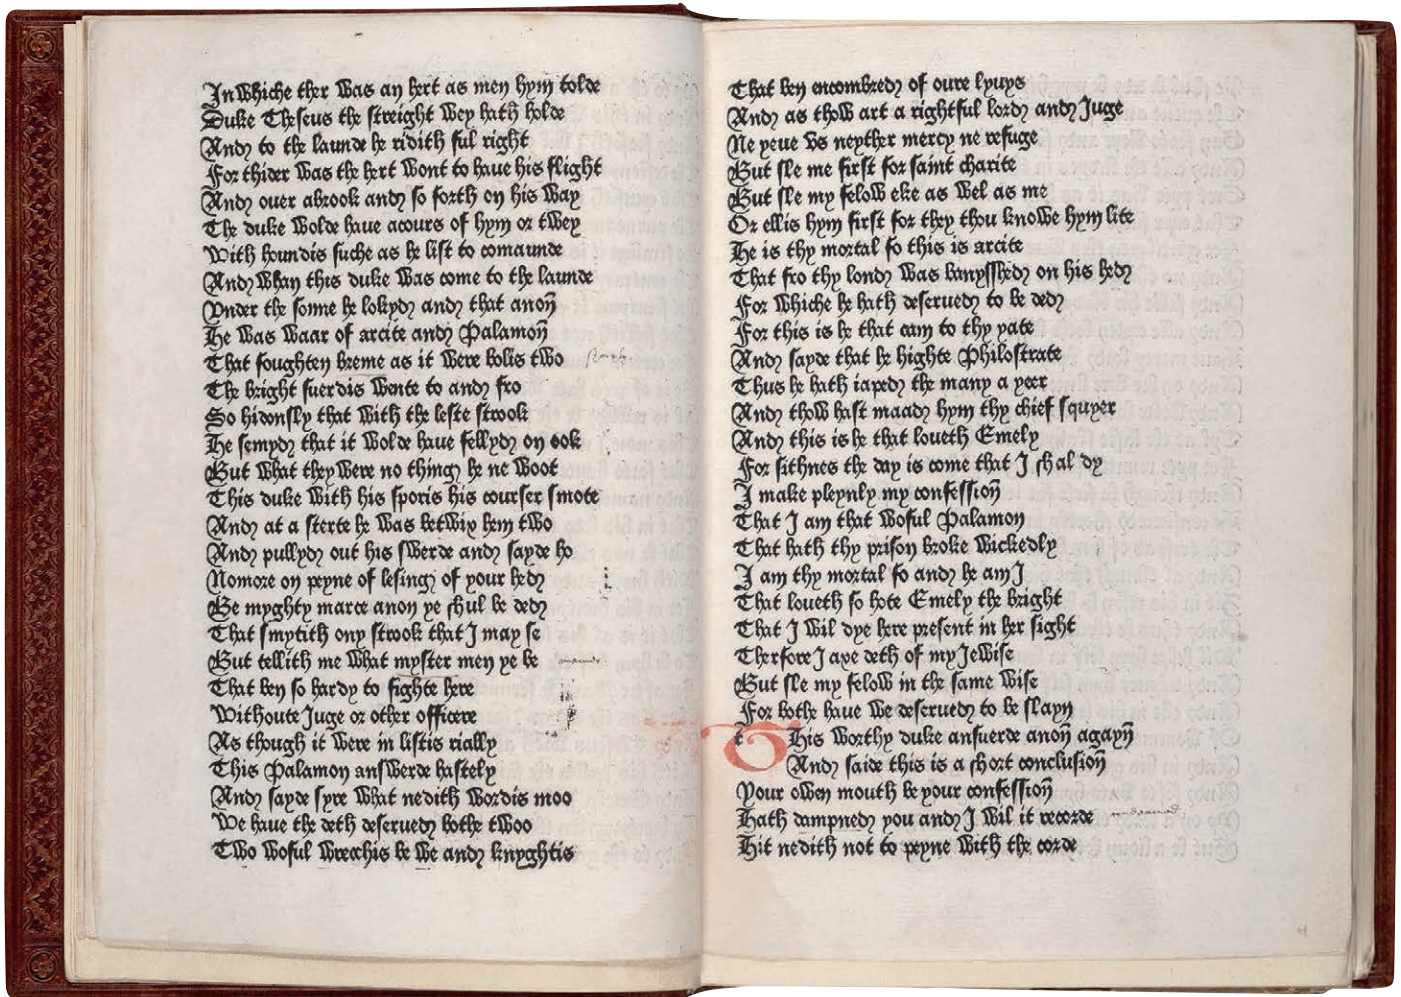 In whiche ther was an hert as men hym tolde
Duke Theseus the streight wey hath holde
And to the launde he ridith ful right
For thider was the hert wont to haue his flight
And ouer abrook and so forth on his way
The duke wolde haue acours of hym or twey
With houndis suche as he list to comaunde
And whan this duke was come to the launde
Vnder the sonne he lokyd and that anon
He was waar of arcite and Palamon
That foughten breme as it were bolis two
The bright suerdis wente to and fro
So hidously that with the leste strook
He semyd that it wolde haue fellyd on ook
But what they were no thing he ne woot
This duke with his sporis his courser smote
And at a sterte he was betwix hem two
And pullyd out his swerde and sayde ho
Nomore on peyne of lesing of your hed
Be myghty marce anon ye shul be ded
That smytith ony strook that I may se
But tellith me what myster men ye be
That ben so hardy to fighte here
Withoute Iuge or other officere
As though it were in listis rially
This Palamon answerde hastely
And sayde syre what nedith wordis moo
We haue the deth deserued bothe twoo
Two woful wrecchis be we and knyghtis
That ben encombred of oure lyuys
And as thow art a rightful lord and Iuge
Ne yeue vs neyther mercy ne refuge
But sle me first for saint charite
But sle my felow eke as wel as me
Or ellis hym first for they thou knowe hym lite
He is thy mortal fo this is arcite
That fro thy lond was banysshed on his hed
For whiche he hath deserued to be ded
For this is he that cam to thy yate
And sayde that he highte Philostrate
Thus he hath iaped the many a yeer
And thow hast maad hym thy chief squyer
And this is he that loueth Emely
For sithnes the day is come that I shal dy
I make pleynly my confession
That I am that woful Palamon
That hath thy prison broke wickedly
I am thy mortal fo and he am I
That loueth so hote Emely the bright
That I wil dye here present in her sight
Therfore I axe deth of my Iewise
But sle my felow in the same wise
For bothe haue we deserued to be slayn
This worthy duke ansuerde anon agayn
And saide this is a short conclusion
Your owen mouth be your confession
Hath dampned you and I wil it recorde
Hit nedith not to peyne with the corde